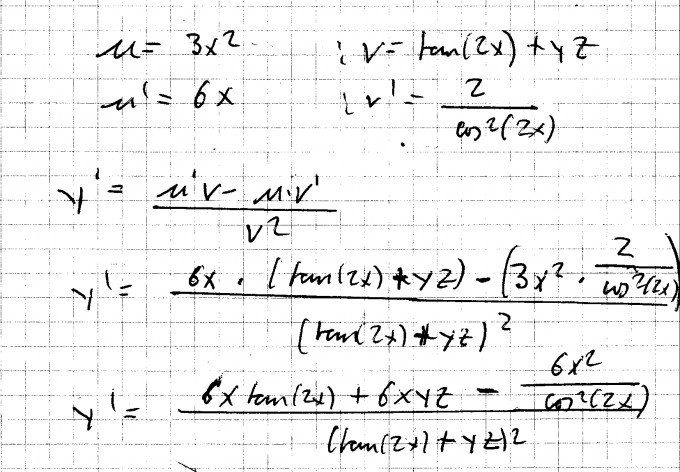 u = 3x² ; v = tan(2x) + yz
u' = 6x ; v' = 2/cos²(2x)
y' = (u'v - u·v')/v²
y' = (6x · (tan(2x) + yz) - (3x² · 2/cos²(2x)))/(tan(2x) + yz)²
y' = (6x tan(2x) + 6xyz - 6x²/cos²(2x))/(tan(2x) + yz)²